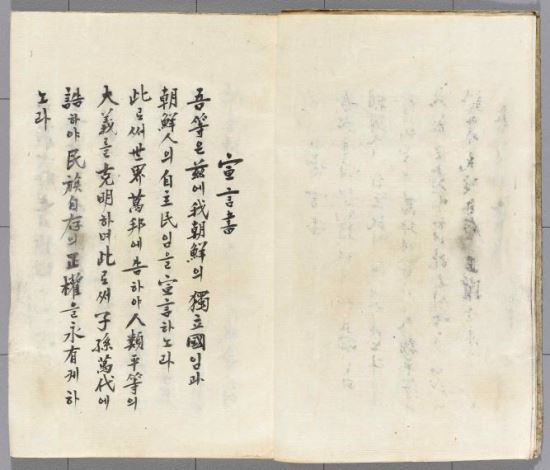 宣言書
吾等은玆에我朝鮮의獨立國임과
朝鮮人의自主民임을宣言하노라
此로써世界萬邦에告하야人類平等의
大義를克明하며此로써子孫萬代에
誥하야民族自存의正權을永有케하
노라